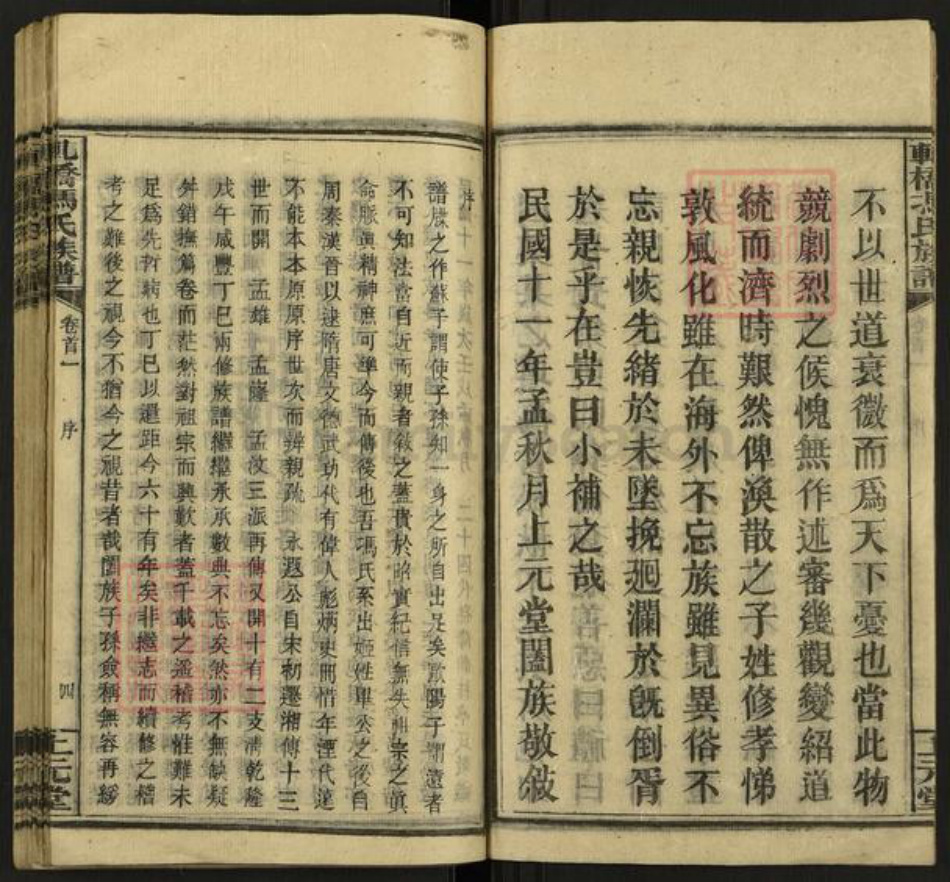 不以世道衰微而爲天下憂也當此物
競劇烈之候愧無作述審幾觀變紹道
統而濟時艱然俾渙散之子姓修孝悌
敦風化雖在海外不忘族雖見異俗不
忘親恢先緒於未墜挽廻瀾於旣倒胥
於是乎在豈曰小補之哉
民國十一年孟秋月上元堂闔族敬敍
譜牒之作蘇子謂使子孫知一身之所自出足矣歐陽子謂遠者
不可知法當自近而親者敍之蓋貴於昭實紀信無失宗之眞
命脈眞精神庶可準今而傳後也吾馮氏系出姬姓畢公之後自
周秦漢晉以逮隋唐文德武功代有偉人彪炳史冊惜年湮代遠
不能本本原原序世次而辨親疏 永遐公自宋初遷湘傳十三
世而開 孟雄 孟隆 孟汶三派再傳又開十有二支淸乾隆
戊午咸豐丁巳兩修族譜繼繼承承數典不忘矣然亦不無缺疑
舛錯撫篇卷而茫然對祖宗而興歎者蓋千載之遥稽考惟難未
足爲先哲病也丁巳以還距今六十有年矣非繼志而續修之稽
考之難後之視今不猶今之視昔者哉闔族子孫僉稱無容再緩
軋橋馮氏族譜
卷首一
序
四
上元堂